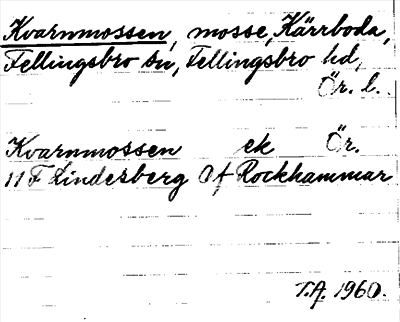 Kvarnmossen, mosse, Kärrboda,
Fellingsbro sn, Fellingsbro hd,
Ör. l.
Kvarnmossen ek Ör.
11 F Lindesberg Of Rockhammar
T.A. 1960.